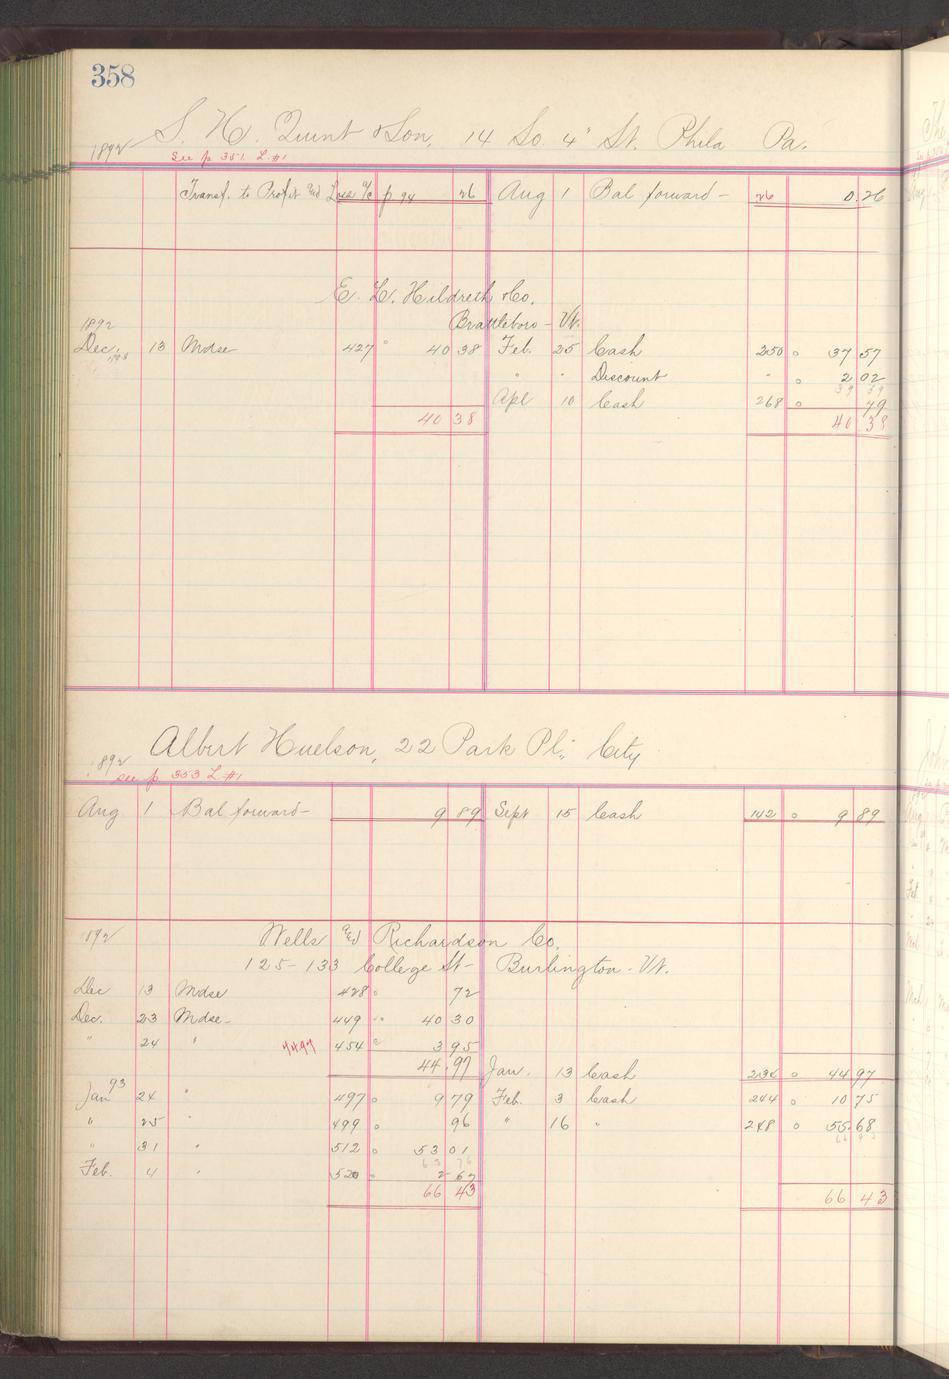 358
S. H. Quint & Son, 14 So. 4" St. Phila Pa.
1892 See p 351 L #1
Transf. to Profit and Loss a/c p 94 26 Aug 1 Bal forward - 26 0.26
E. L. Hildreth & Co.
1892 Brattleboro - Vt.
Dec. 13 Mdse 427 40 38 Feb. 25 Cash 250 37 57
" " Discount " 2 02
39 59
Apl 10 Cash 268 79
40 38 40 38
Albert Huelson, 22 Park Pl., City
1892
see p 353 L #1
Aug 1 Bal forward - 9 89 Sept 15 Cash 142 9 89
1892 Wells and Richardson Co.
125-133 College St - Burlington - Vt.
Dec 13 Mdse 428 72
Dec. 23 Mdse - 449 40 30
" 24 " 4497 454 3 95
44.97 Jan. 13 Cash 234 44 97
93
Jan 24 " 497 9 79 Feb. 3 Cash 244 10 75
" 25 " 499 96 " 16 " 248 55.68
" 31 " 512 53 01
63 76
Feb. 4 " 520 2 67
66 43 66 43